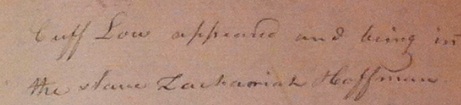 Cuff Low appeared and being in
the slave Zachariah Hoffman